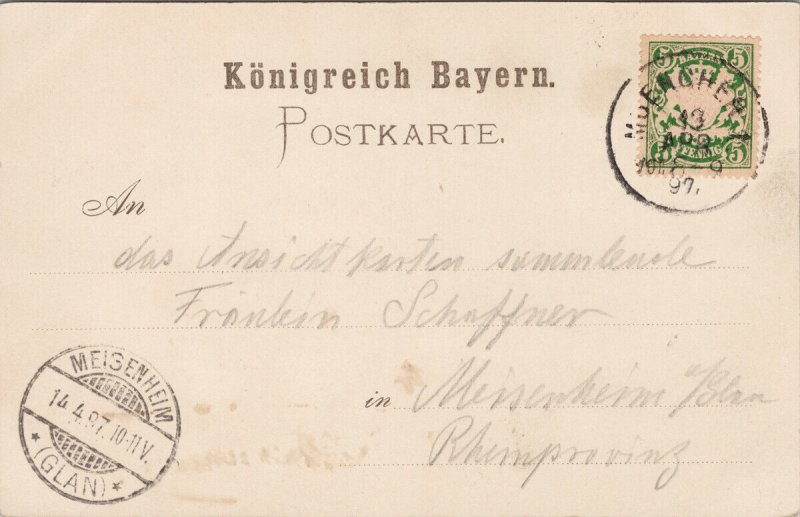 Königreich Bayern.
POSTKARTE.
5 BAYERN 5
5 PFENNIG 5
MUENCHEN 1
13
APR
8-9
97.
An
das Ansichtkarten sammelnde
Fräulein Schaffner
in Meisenheim a/Glan
Rheinprovinz
MEISENHEIM
14.4.97.10-11V.
* (GLAN) *